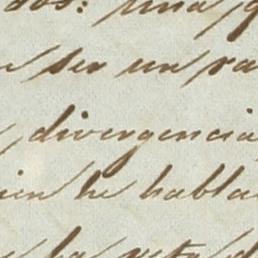 dos: una
ser un ra
divergencia
ien he habla
la